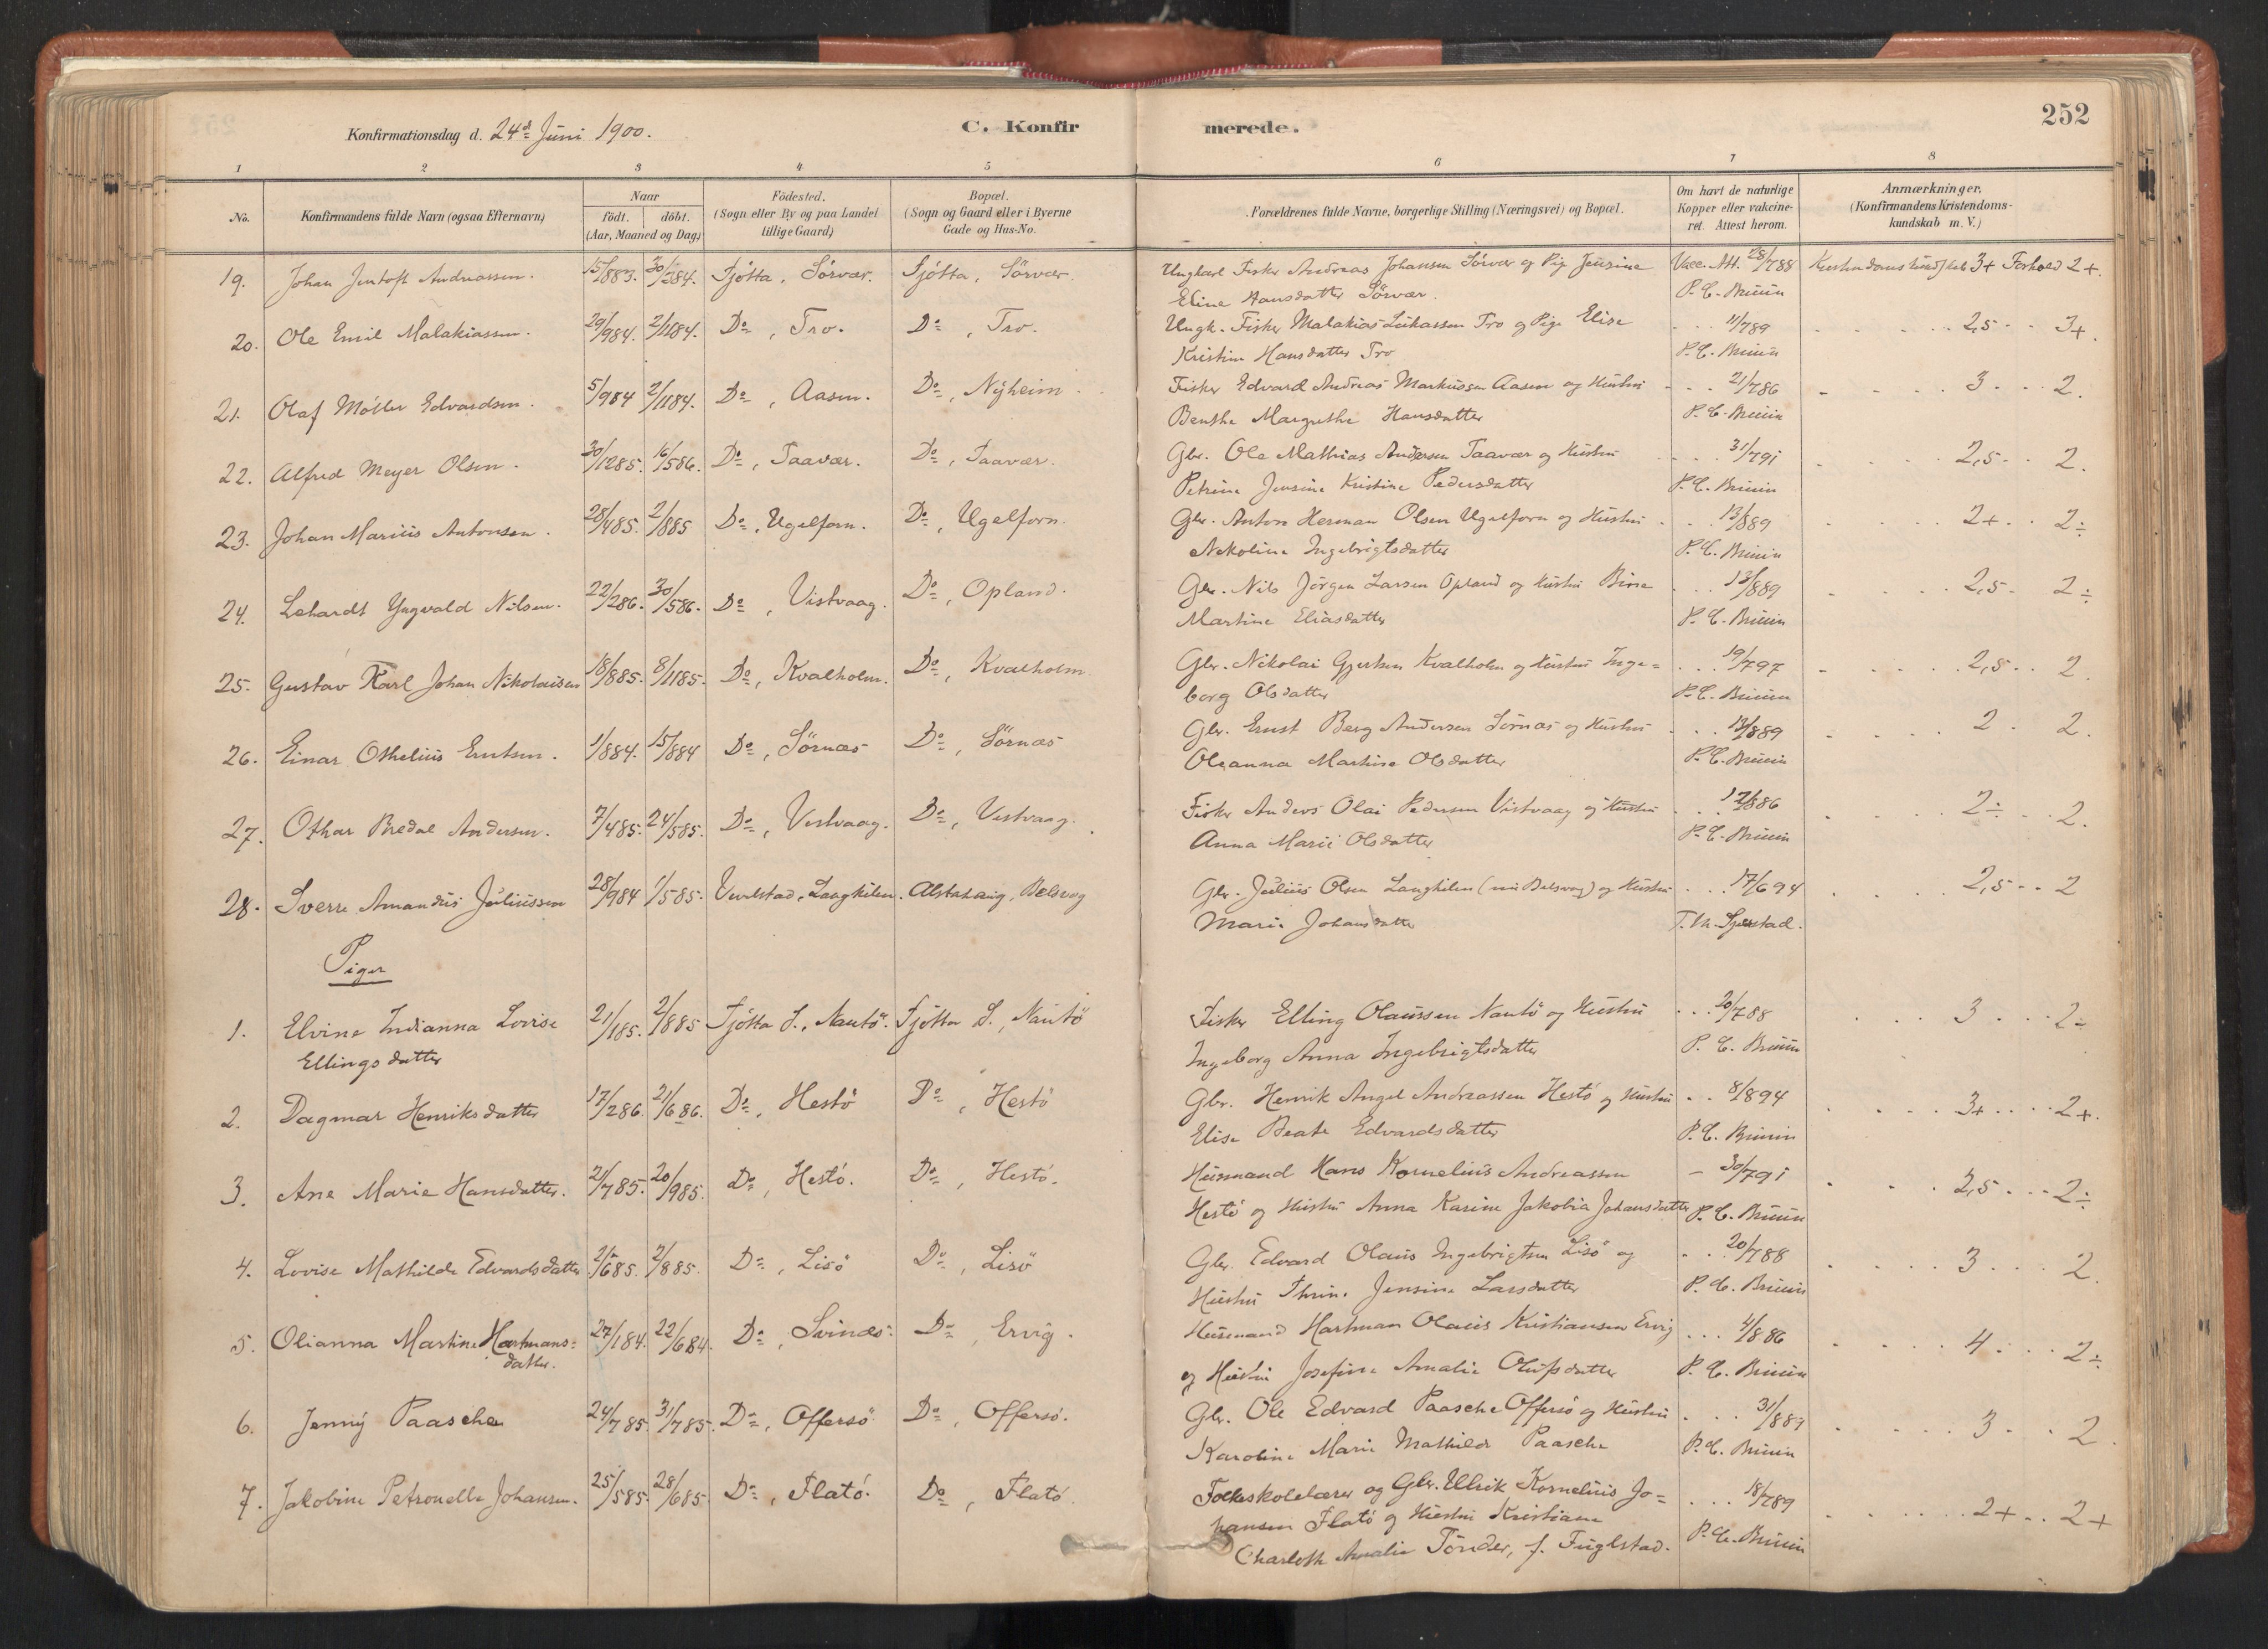 252
Konfirmationsdag d. 24de Juni 1900.
C. Konfirmerede.
1 2 3 4 5 6 7 8
No.
Konfirmandens fulde Navn (ogsaa Efternavn)
Naar
födt. döbt.
(Aar, Maaned og Dag)
Födested.
(Sogn eller By og paa Landet
tillige Gaard)
Bopæl.
(Sogn og Gaard eller i Byerne
Gade og Hus-No.
Forældrenes fulde Navne, borgerlige Stilling (Næringsvei) og Bopæl.
Om havt de naturlige
Kopper eller vakcine-
ret. Attest herom.
Anmærkninger.
(Konfirmandens Kristendoms-
kundskab m. V.)
19. Johan Jentoft Andreassen. 15/883. 30/284. Tjötta, Sörvær. Tjötta, Sörvær. Ungkarl Fisker Andreas Johansen Sörvær og Pige Jensine Vacc. Att. 28/788 Kristendomskundskab 3+ Forhold 2+.
Eline Hansdatter Sörvær. P. C. Bruun
20. Ole Emil Malakiassen. 29/984. 2/1184. Do, Tro. Do, Tro. Ungk. Fisker Malakias Lukassen Tro og Pige Elise 11/789 2,5 3+.
Kristine Hansdatter Tro P. C. Bruun
21. Olaf Möller Edvardsen. 5/984 2/1184. Do, Aasen. Do, Nyheim Fisker Edvard Andreas Markussen Aasen og Hustru 21/786 3 2.
Benthe Margrethe Hansdatter P. C. Bruun
22. Alfred Meyer Olsen. 30/1285. 16/586. Do, Taavær. Do, Taavær. Gbr. Ole Mathias Andersen Taavær og Hustru 31/791 2,5 2.
Petrine Jensine Kristine Pedersdatter P. C. Bruun
23. Johan Marius Antonsen. 28/485. 2/885 Do, Ugelforn. Do, Ugelforn. Gbr. Anton Herman Olsen Ugelforn og Hustru 13/889 2+ 2÷
Nekoline Ingebrigtsdatter P. C. Bruun
24. Lehardt Yngvald Nilsen. 22/286. 30/586. Do, Vistvaag. Do, Opland. Gbr. Nils Jörgen Larsen Opland og Hustru 13/889 2,5 2÷
Martine Eliasdatter P. C. Bruun
25. Gustav Karl Johan Nikolaisen 18/885. 8/1185. Do, Kvalholm. Do, Kvalholm Gbr. Nikolai Gjertsen Kvalholm og Hustru Inge= 19/797 2,5 2.
borg Olsdatter P. C. Bruun
26. Einar Othelius Erntsen. 1/884. 15/884 Do, Sörnæs Do, Sörnæs Gbr. Ernst Berg Andersen Sörnæs og Hustru 13/889 2 2.
Oleanna Martine Olsdatter P. C. Bruun
27. Othar Bredal Andersen. 7/485. 24/585. Do, Vistvaag. Do, Vistvaag. Fisker Anders Olai Pedersen Vistvaag og Hustru 12/886 2÷ 2.
Anna Marie Olsdatter P. C. Bruun
28. Sverre Amandus Juliussen 28/984 1/585. Vevelstad, Laagkilen. Alstahaug, Belsvog Gbr. Julius Olsen Langhilen (nu Belsvag) og Hustru 17/694 2,5 2
Marie Johansdatter
Piger
1. Elvine Indianna Lovise 21/185. 2/885 Tjötta S., Nautö. Tjötta S., Nautö Fisker Elling Olaussen Nautö og Hustru 20/788 3 2÷
Ellingsdatter Ingeborg Anna Ingebrigtsdatter P. C. Bruun
2. Dagmar Henriksdatter 17/286. 21/686. Do, Hestö Do, Hestö Gbr. Henrik Angel Andreassen Hestö og Hustru 8/894 3+ 2+.
Elise Beate Edvardsdatter P. C. Bruun
3. Ane Marie Hansdatter. 21/785. 20/985. Do, Hestö. Do, Hestö. Husmand Hans Kornelius Andreassen 30/791 2,5 2÷
Hestö og Hustru Anna Karine Jakobia Johansdatter P. C. Bruun
4. Lovise Mathilde Edvardsdatter 2/685. 2/885. Do, Lisö Do, Lisö Gbr. Edvard Olaus Ingebrigtsen Lisö og 20/788 3 2.
Hustru Thrine Jensine Larsdatter P. C. Bruun
5. Olianna Martine Hartmans= 27/184. 22/684. Do, Svinæs. Do, Ervig. Husmand Hartman Olaus Kristiansen Ervig 4/886 4 2÷
datter. og Hustru Josefine Amalie Olufsdatter P. C. Bruun
6. Jenny Paasche 24/785. 31/785. Do, Offersö. Do, Offersö. Gbr. Ole Edvard Paasche Offersö og Hustru 31/889 3 2.
Karoline Marie Mathilde Paasche P. C. Bruun
7. Jakobine Petronelle Johansen. 25/585. 28/685. Do, Flatö. Do, Flatö. Folkeskolelærer og Gbr. Ulrik Kornelius Jo= 18/789 2+ 2+
hansen Flatö og Hustru Kristiane
Charlotte Amalie Tönder, f. Fuglstad. P. C. Bruun